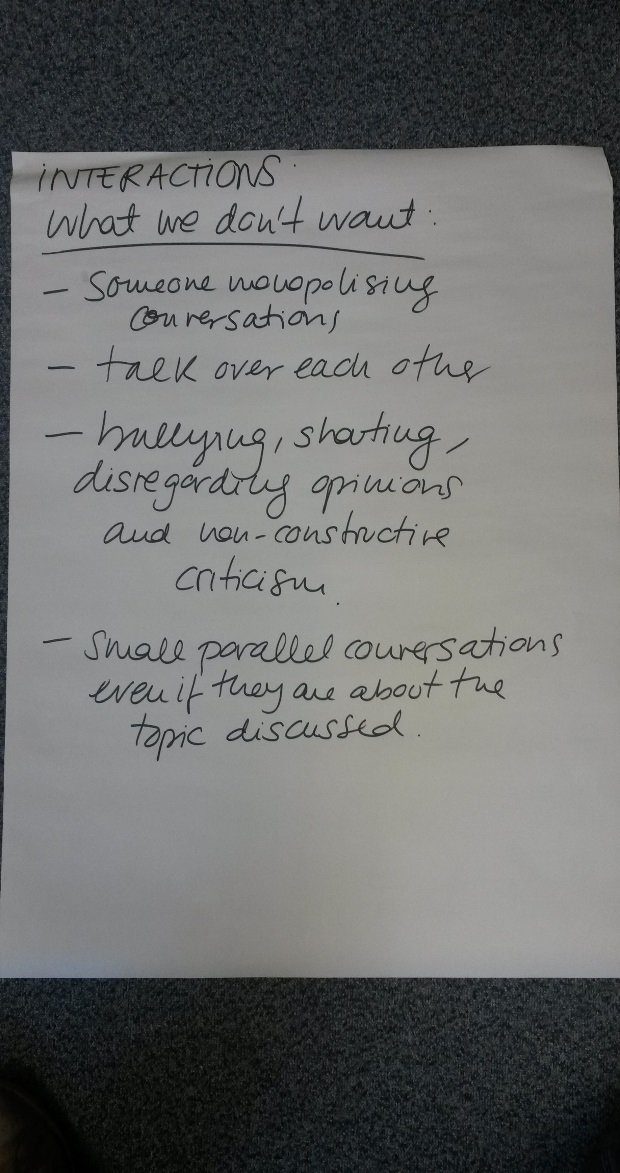 INTERACTIONS:
What we don't want:
- Someone monopolising
conversations
- talk over each other
- bullying, shouting,
disregarding opinions
and non-constructive
criticism.
- Small parallel conversations
even if they are about the
topic discussed.